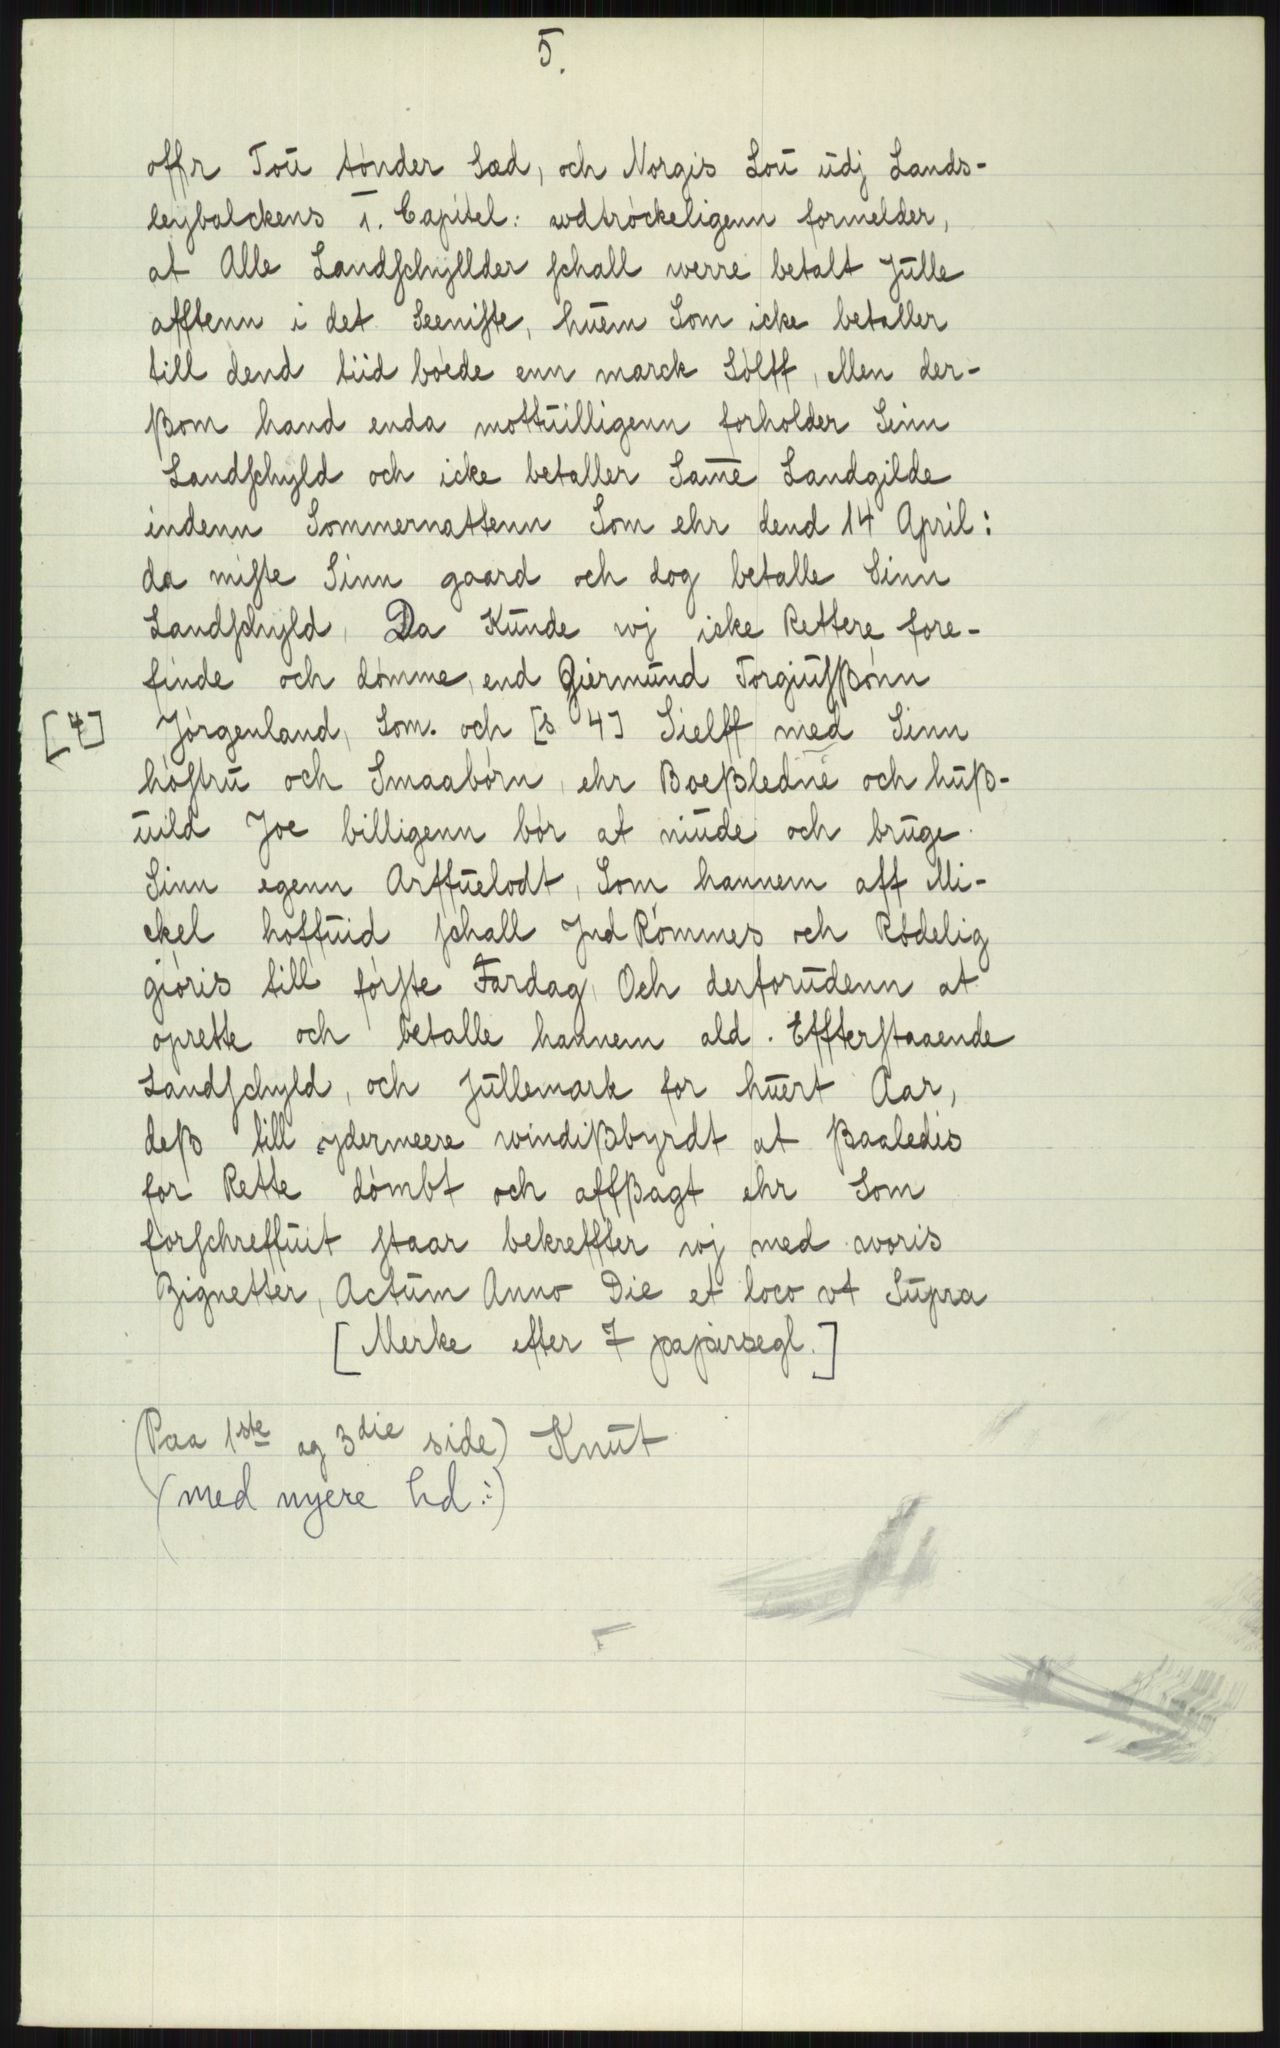 5.
offr Toū tónder Sæd, och Norgis Loū ūdj Lands-
leybalckens 1. Capitel: wdtróckeligenn formelder,
at Alle Landſchyllder ſchall werre betalt Jūlle
afftenn i det Seeniſte, hūem Som icke betaller
till dend tiid bóede enn marck Sólff, Men der-
ßom hand enda mottūilligenn forholder Sinn
Landſchyld och icke betaller Sam̄e Landgilde
indenn Sommernattenn Som ehr dend 14 April:
da miſte Sinn gaard och dog betalle Sinn
Landſchyld, Da Kūnde wj icke Rettere fore-
finde och dómme, end Giermūnd Torgiūſßónn
[4] Jórgenland, Som. och [s 4] Sielff med Sinn
hóſtrū och Smaabórn, ehr Boeßledne och hūß-
ūild Joe billigenn bór at niūde och brūge
Sinn egenn Arffūelodt, Som hannem aff Mi-
ckel hoffūid ſchall Jnd Rómmes och Rødelig
gióris till fórſte Fardag, Och derforūdenn at
oprette och betalle hannem ald. Effterſtaaende
Landſchyld, och Jūllemark for hūert Aar,
deß till ydermeere windißbyrdt at ßaaledis
for Rette dómbt och affßagt ehr Som
forſchreffūit ſtaar bekreffter wj med woris
Zignetter, Actūm Anno Die et loco vt Sūpra
[Merke efter 7 papirsegl.]
(Paa 1ste og 3die side) Knūt
(med nyere hd:)